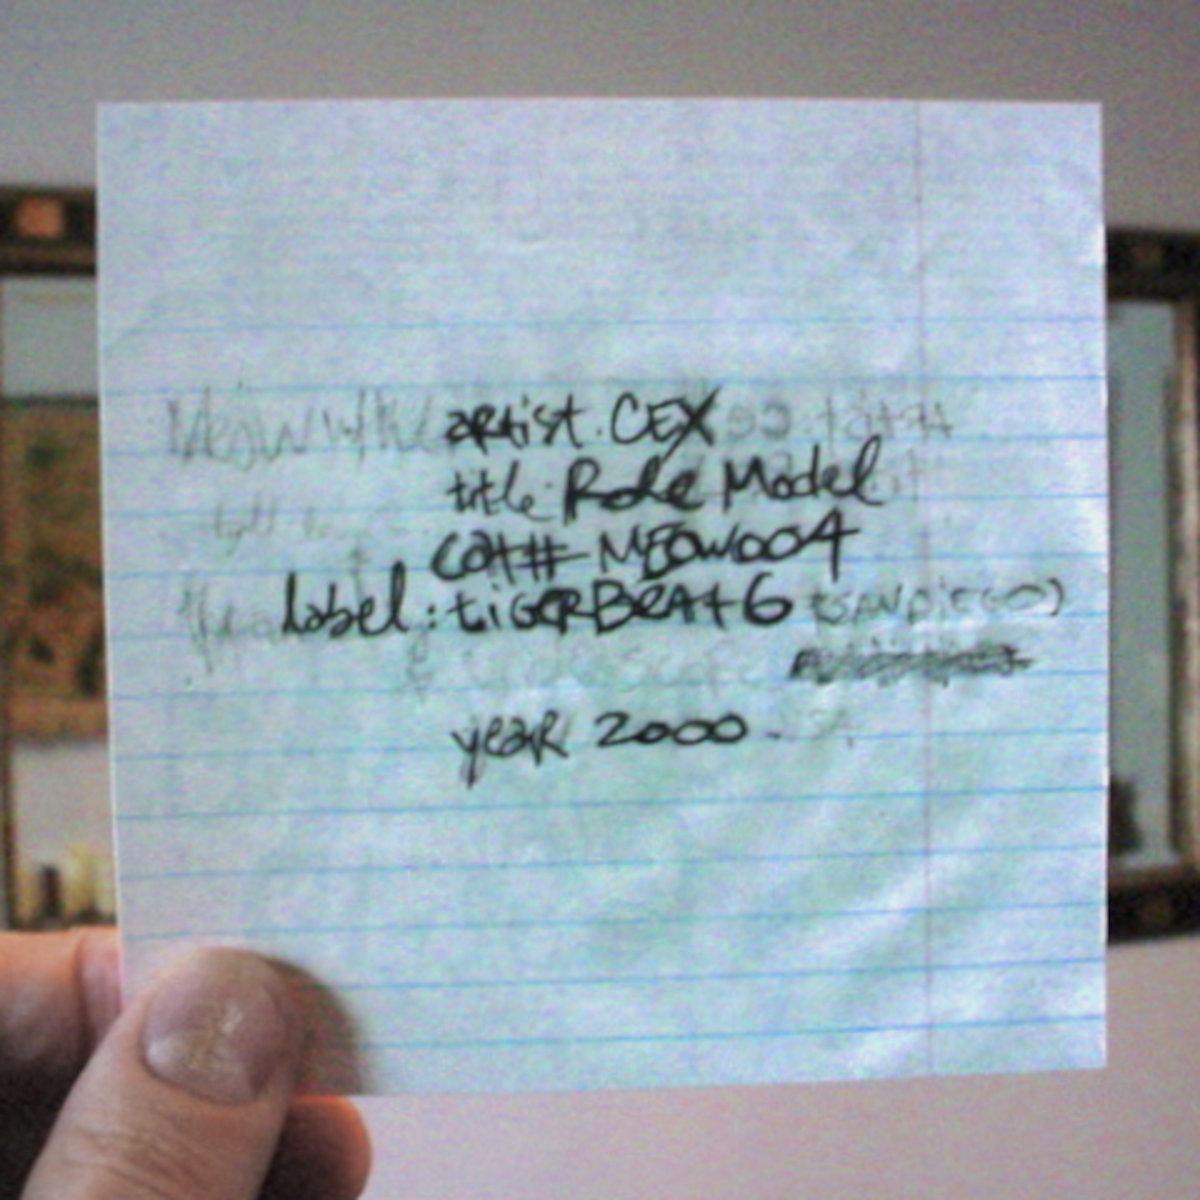 artist. CEX
title: Role Model
cat# MEOW004
label: tiGERBEAt6 (SAN DIEGO)
year 2000.